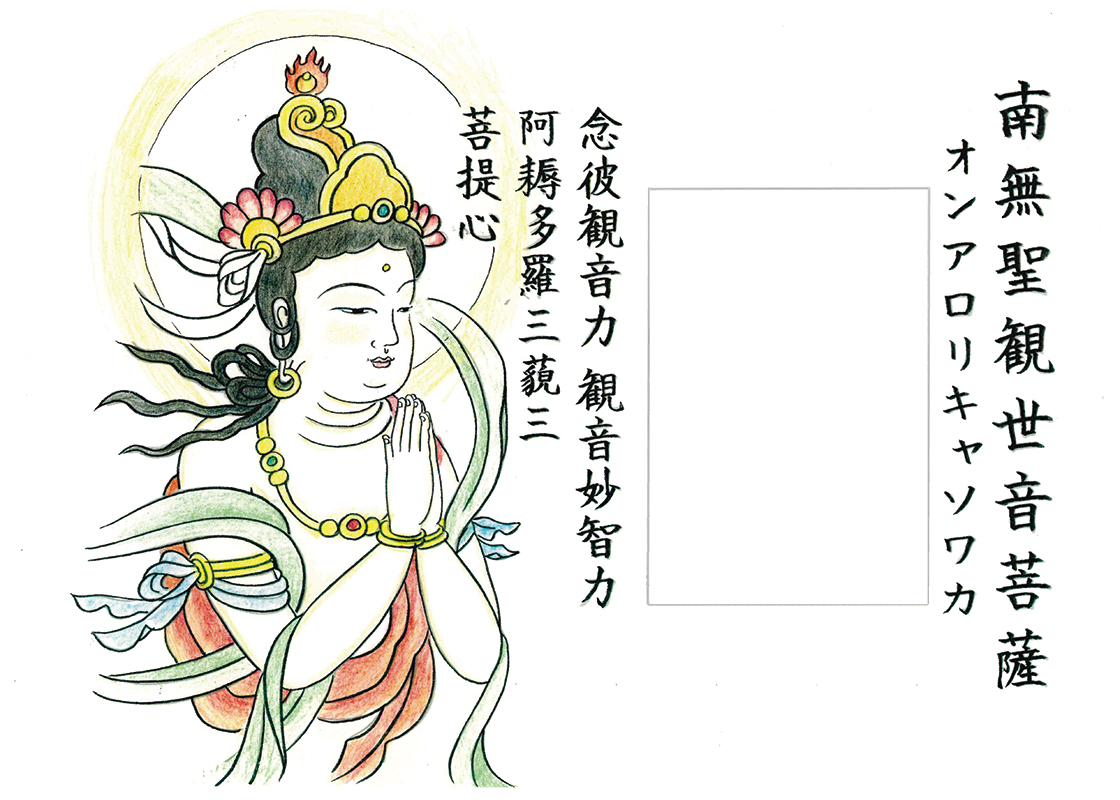 南無聖観世音菩薩
オンアロリキャソワカ
念彼観音力 観音妙智力
阿耨多羅三藐三
菩提心